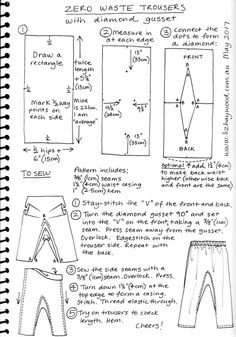 ZERO WASTE TROUSERS
with diamond gusset
①
Draw a
rectangle
twice
length
+
(15cm)
Mark ½ way
points on
each side
Mine
is 22km
I am
"average"
½ hips +
6" (15cm)
② measure in
at each edge
13"
(33cm)
13"
(33cm)
③ connect the
dots to form
a diamond:
FRONT
BACK
www.lizhaywood.com.au May 2017
optional: add 1½" (4cm)
to make back waist
higher (otherwise back
and front are the same)
TO SEW:
Pattern includes;
3/8" (1cm) seams
1½" (4cm) waist casing
1" (2.5cm) hem
① Stay-stitch the "V" of the front and back.
② Turn the diamond gusset 90° and set
into the "V" on the front, taking a 3/8" (1cm)
seam. Press seam away from the gusset.
Overlock. Edgestitch on the
trouser side. Repeat with
the back.
③ Sew the side seams with a
3/8" (1cm) seam. Overlock. Press.
④ Turn down 1½" (4cm) at the
top edge to form a casing.
Stitch. Thread elastic through.
⑤ Try on trousers to check
length. Hem.
Cheers!